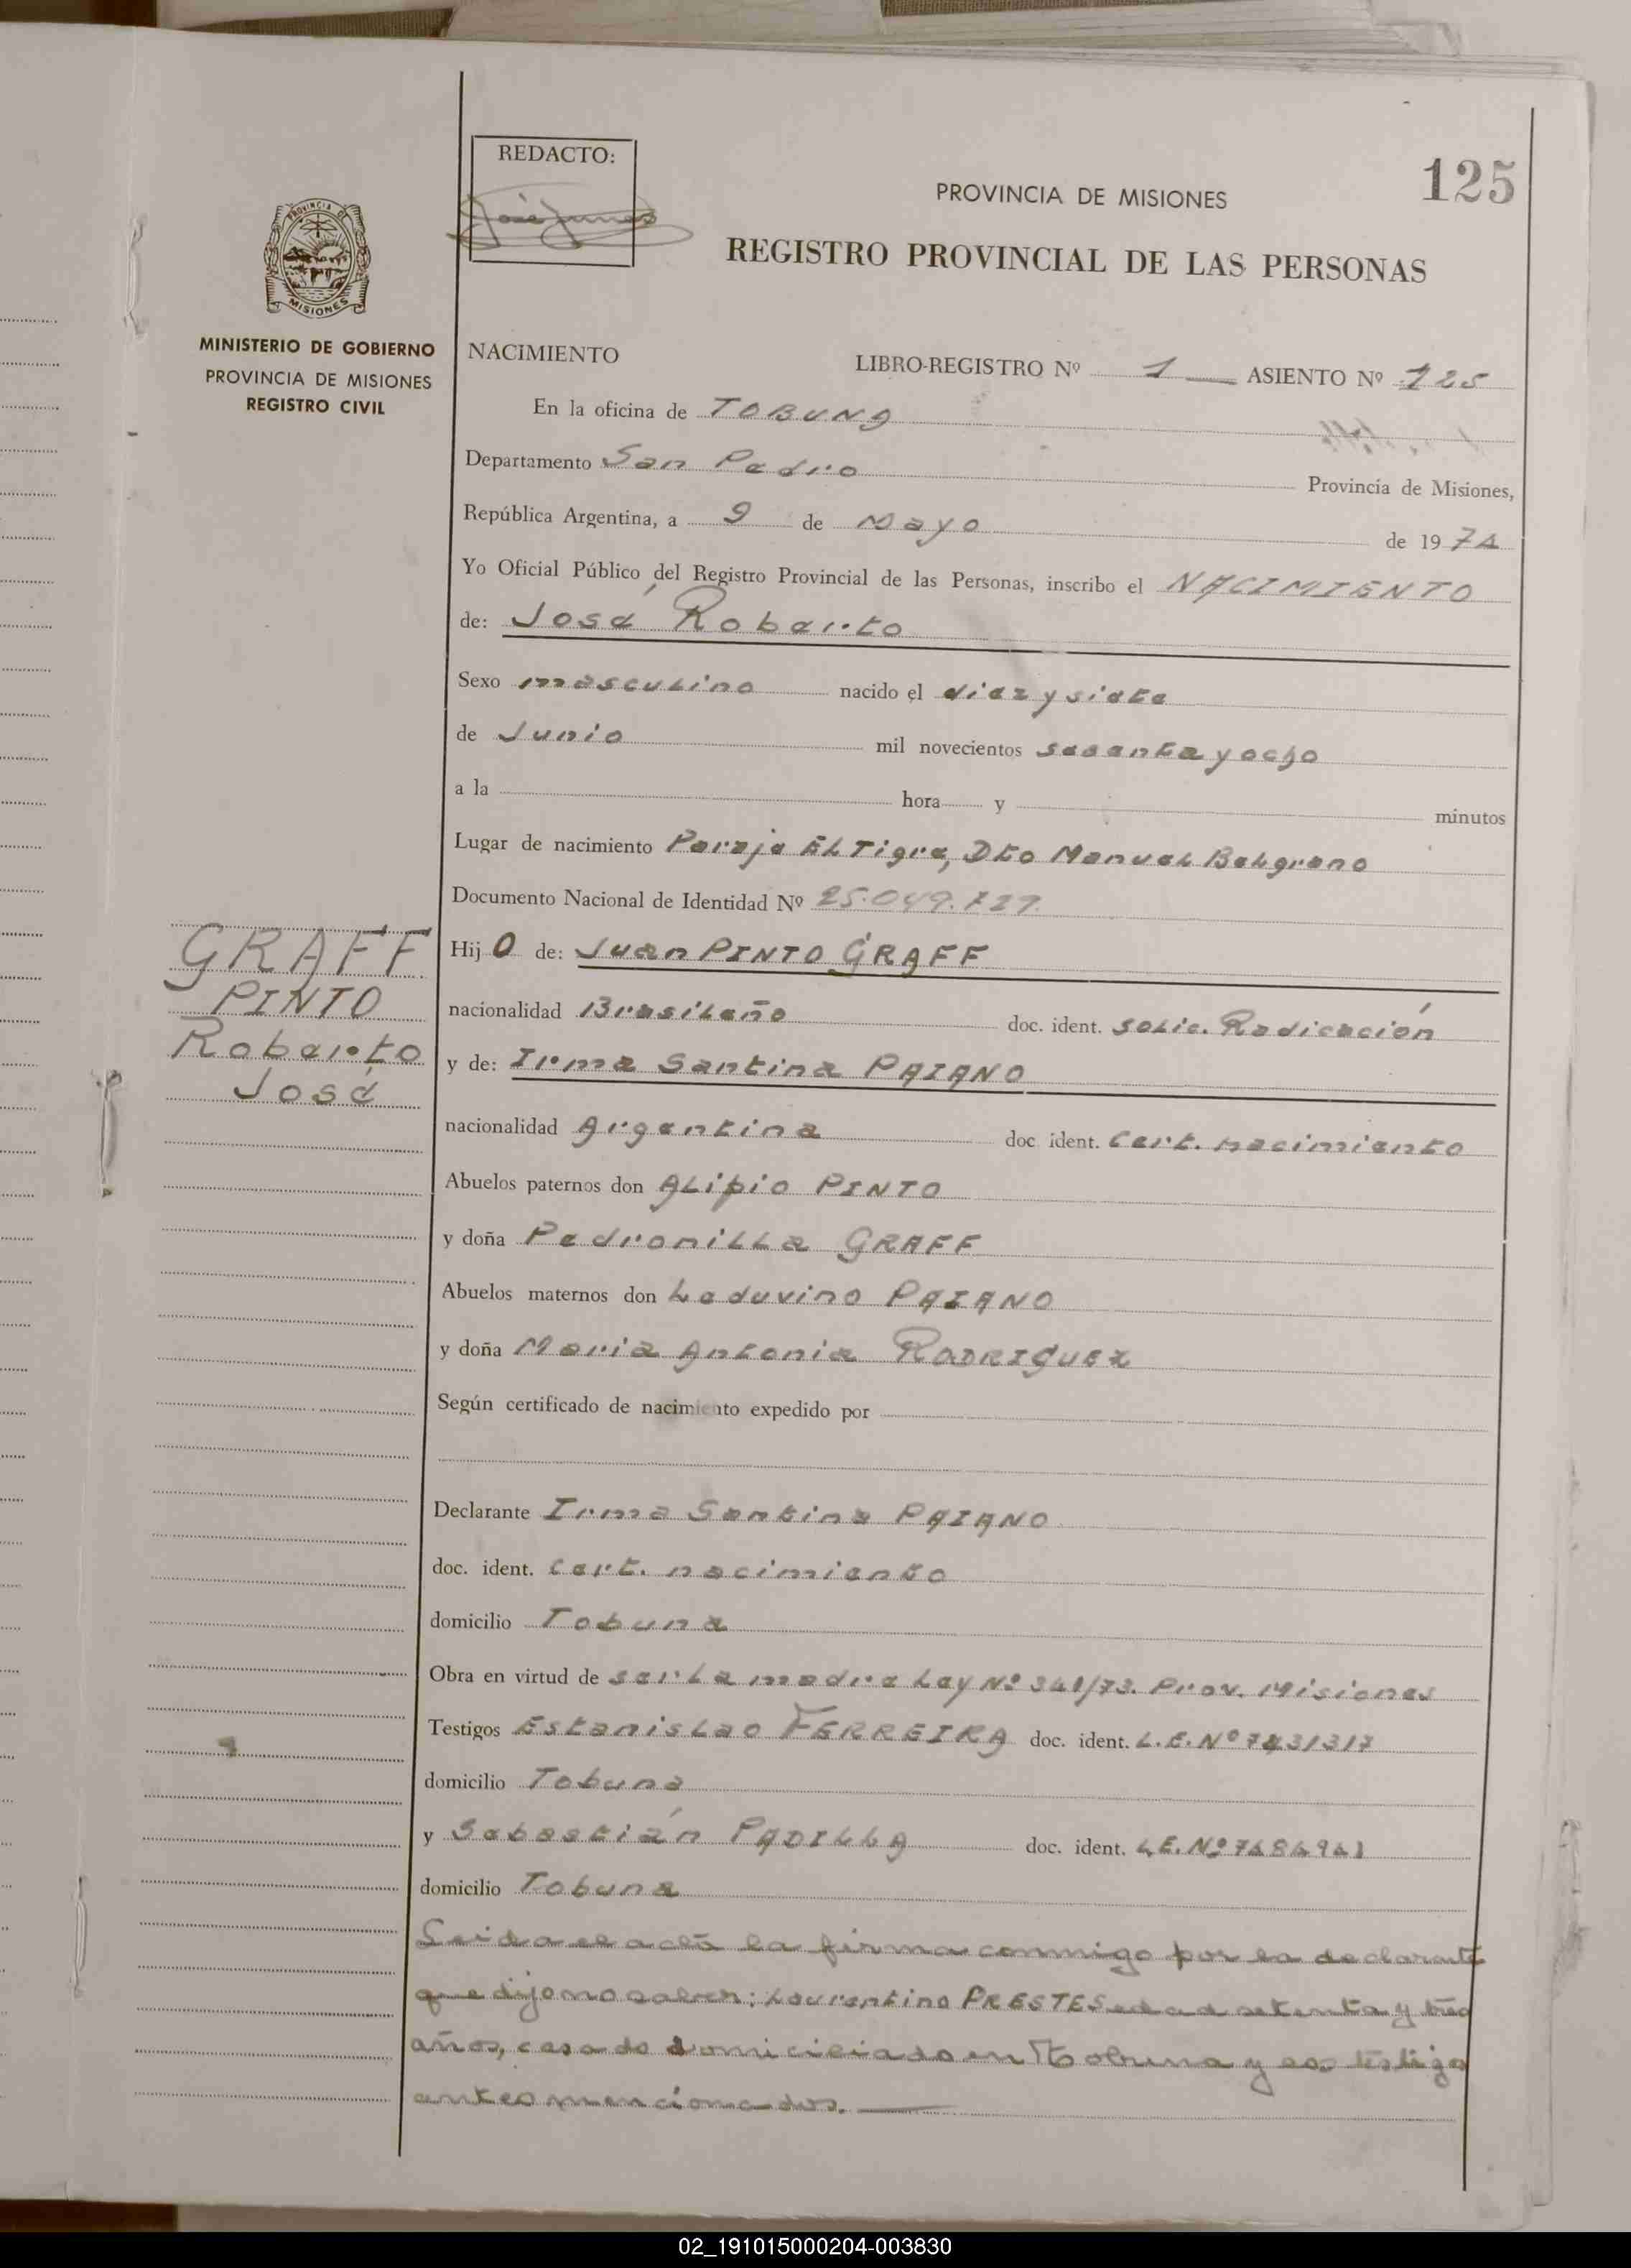 REDACTO:
125
PROVINCIA DE MISIONES
REGISTRO PROVINCIAL DE LAS PERSONAS
PROVINCIA DE
MISIONES
MINISTERIO DE GOBIERNO
PROVINCIA DE MISIONES
REGISTRO CIVIL
NACIMIENTO LIBRO-REGISTRO Nº 1 ASIENTO Nº 125
En la oficina de TOBUNA
Departamento San Pedro Provincia de Misiones,
República Argentina, a 9 de Mayo de 1974
Yo Oficial Público del Registro Provincial de las Personas, inscribo el NACIMIENTO
de: José Roberto
Sexo masculino nacido el diez y siete
de Junio mil novecientos sesenta y ocho
a la hora y minutos
Lugar de nacimiento Paraje El Tigre, Dto Manuel Belgrano
Documento Nacional de Identidad Nº 25.049.727
GRAFF
PINTO
Roberto
José
Hijo de: Juan PINTO GRAFF
nacionalidad Brasileño doc. ident. Solic. Radicación
y de: Irma Santina PAIANO
nacionalidad Argentina doc ident. Cert. nacimiento
Abuelos paternos don Alipio PINTO
y doña Pedronilla GRAFF
Abuelos maternos don Leduvino PAIANO
y doña Maria Antonia RODRIGUEZ
Según certificado de nacimiento expedido por
Declarante Irma Santina PAIANO
doc. ident. Cert. nacimiento
domicilio Tobuna
Obra en virtud de ser la madre Ley Nº 341/73. Prov. Misiones
Testigos Estanislao FERREIRA doc. ident. L.E. Nº 7431317
domicilio Tobuna
y Sebastián PADILLA doc. ident. L.E. Nº 7484941
domicilio Tobuna
Leida el acta la firma conmigo por la declarante
que dijo no saber: Laurentino PRESTES edad setenta y tres
años, casado domiciliado en Tobuna y los testigo
antes mencionados.
02_191015000204-003830